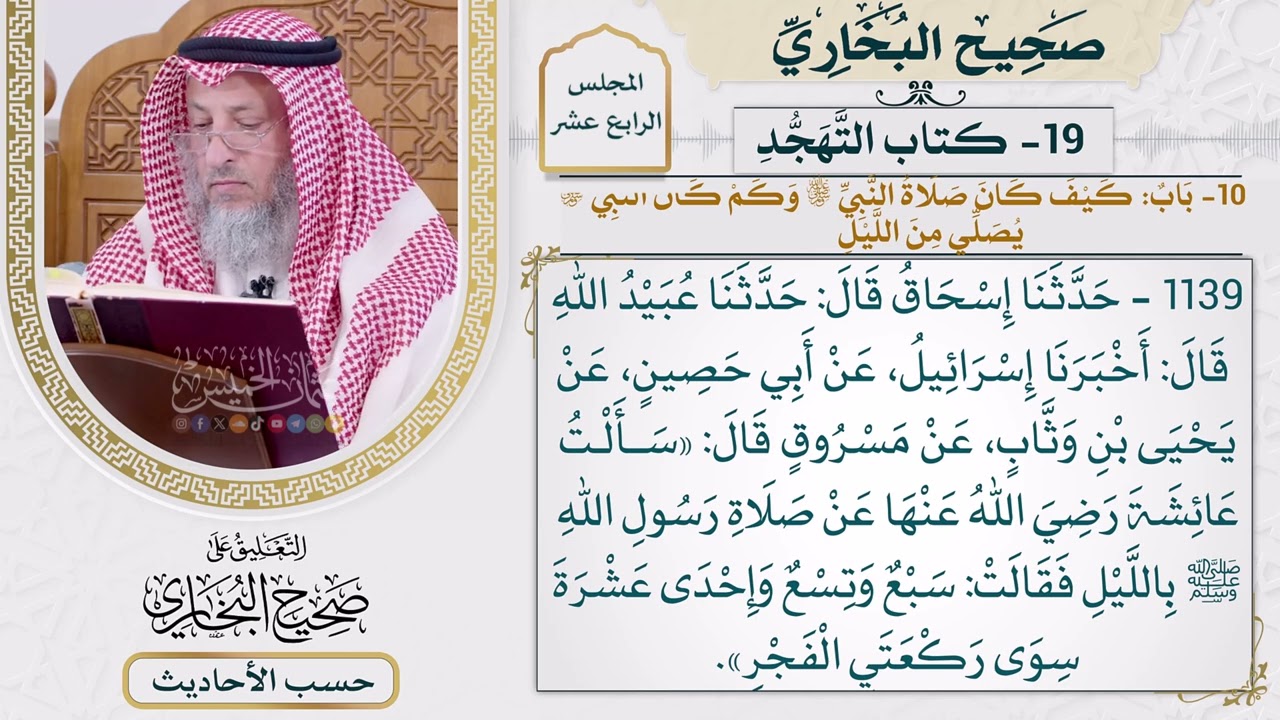 صَحِيح البُخَارِيِّ
المجلس
الرابع عشر
19- كتاب التَّهَجُّدِ
10- بَابٌ: كَيْفَ كَانَ صَلَاةُ النَّبِيِّ ﷺ وَكَمْ كَانَ النَّبِي ﷺ
يُصَلِّي مِنَ اللَّيْلِ
1139 - حَدَّثَنَا إِسْحَاقُ قَالَ: حَدَّثَنَا عُبَيْدُ اللهِ
قَالَ: أَخْبَرَنَا إِسْرَائِيلُ، عَنْ أَبِي حَصِينٍ، عَنْ
يَحْيَى بْنِ وَثَّابٍ، عَنْ مَسْرُوقٍ قَالَ: «سَأَلْتُ
عَائِشَةَ رَضِيَ اللهُ عَنْهَا عَنْ صَلَاةِ رَسُولِ اللهِ
ﷺ بِاللَّيْلِ فَقَالَتْ: سَبْعٌ وَتِسْعٌ وَإِحْدَى عَشْرَةَ
سِوَى رَكْعَتَيِ الْفَجْرِ».
عثمان الخميس
التَّعْلِيقُ عَلَى
صَحِيحُ البُخَارِي
حسب الأحاديث